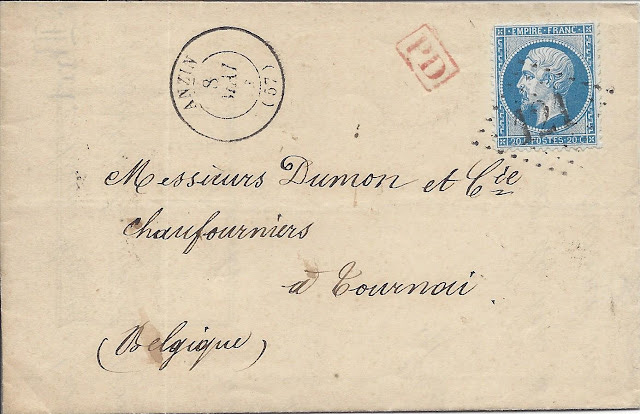 ANZIN (57)
8
MAI
PD
EMPIRE FRANC
121
20c POSTES 20c
Messieurs Dumon et Cie
Chaufourniers
à Tournai
(Belgique)